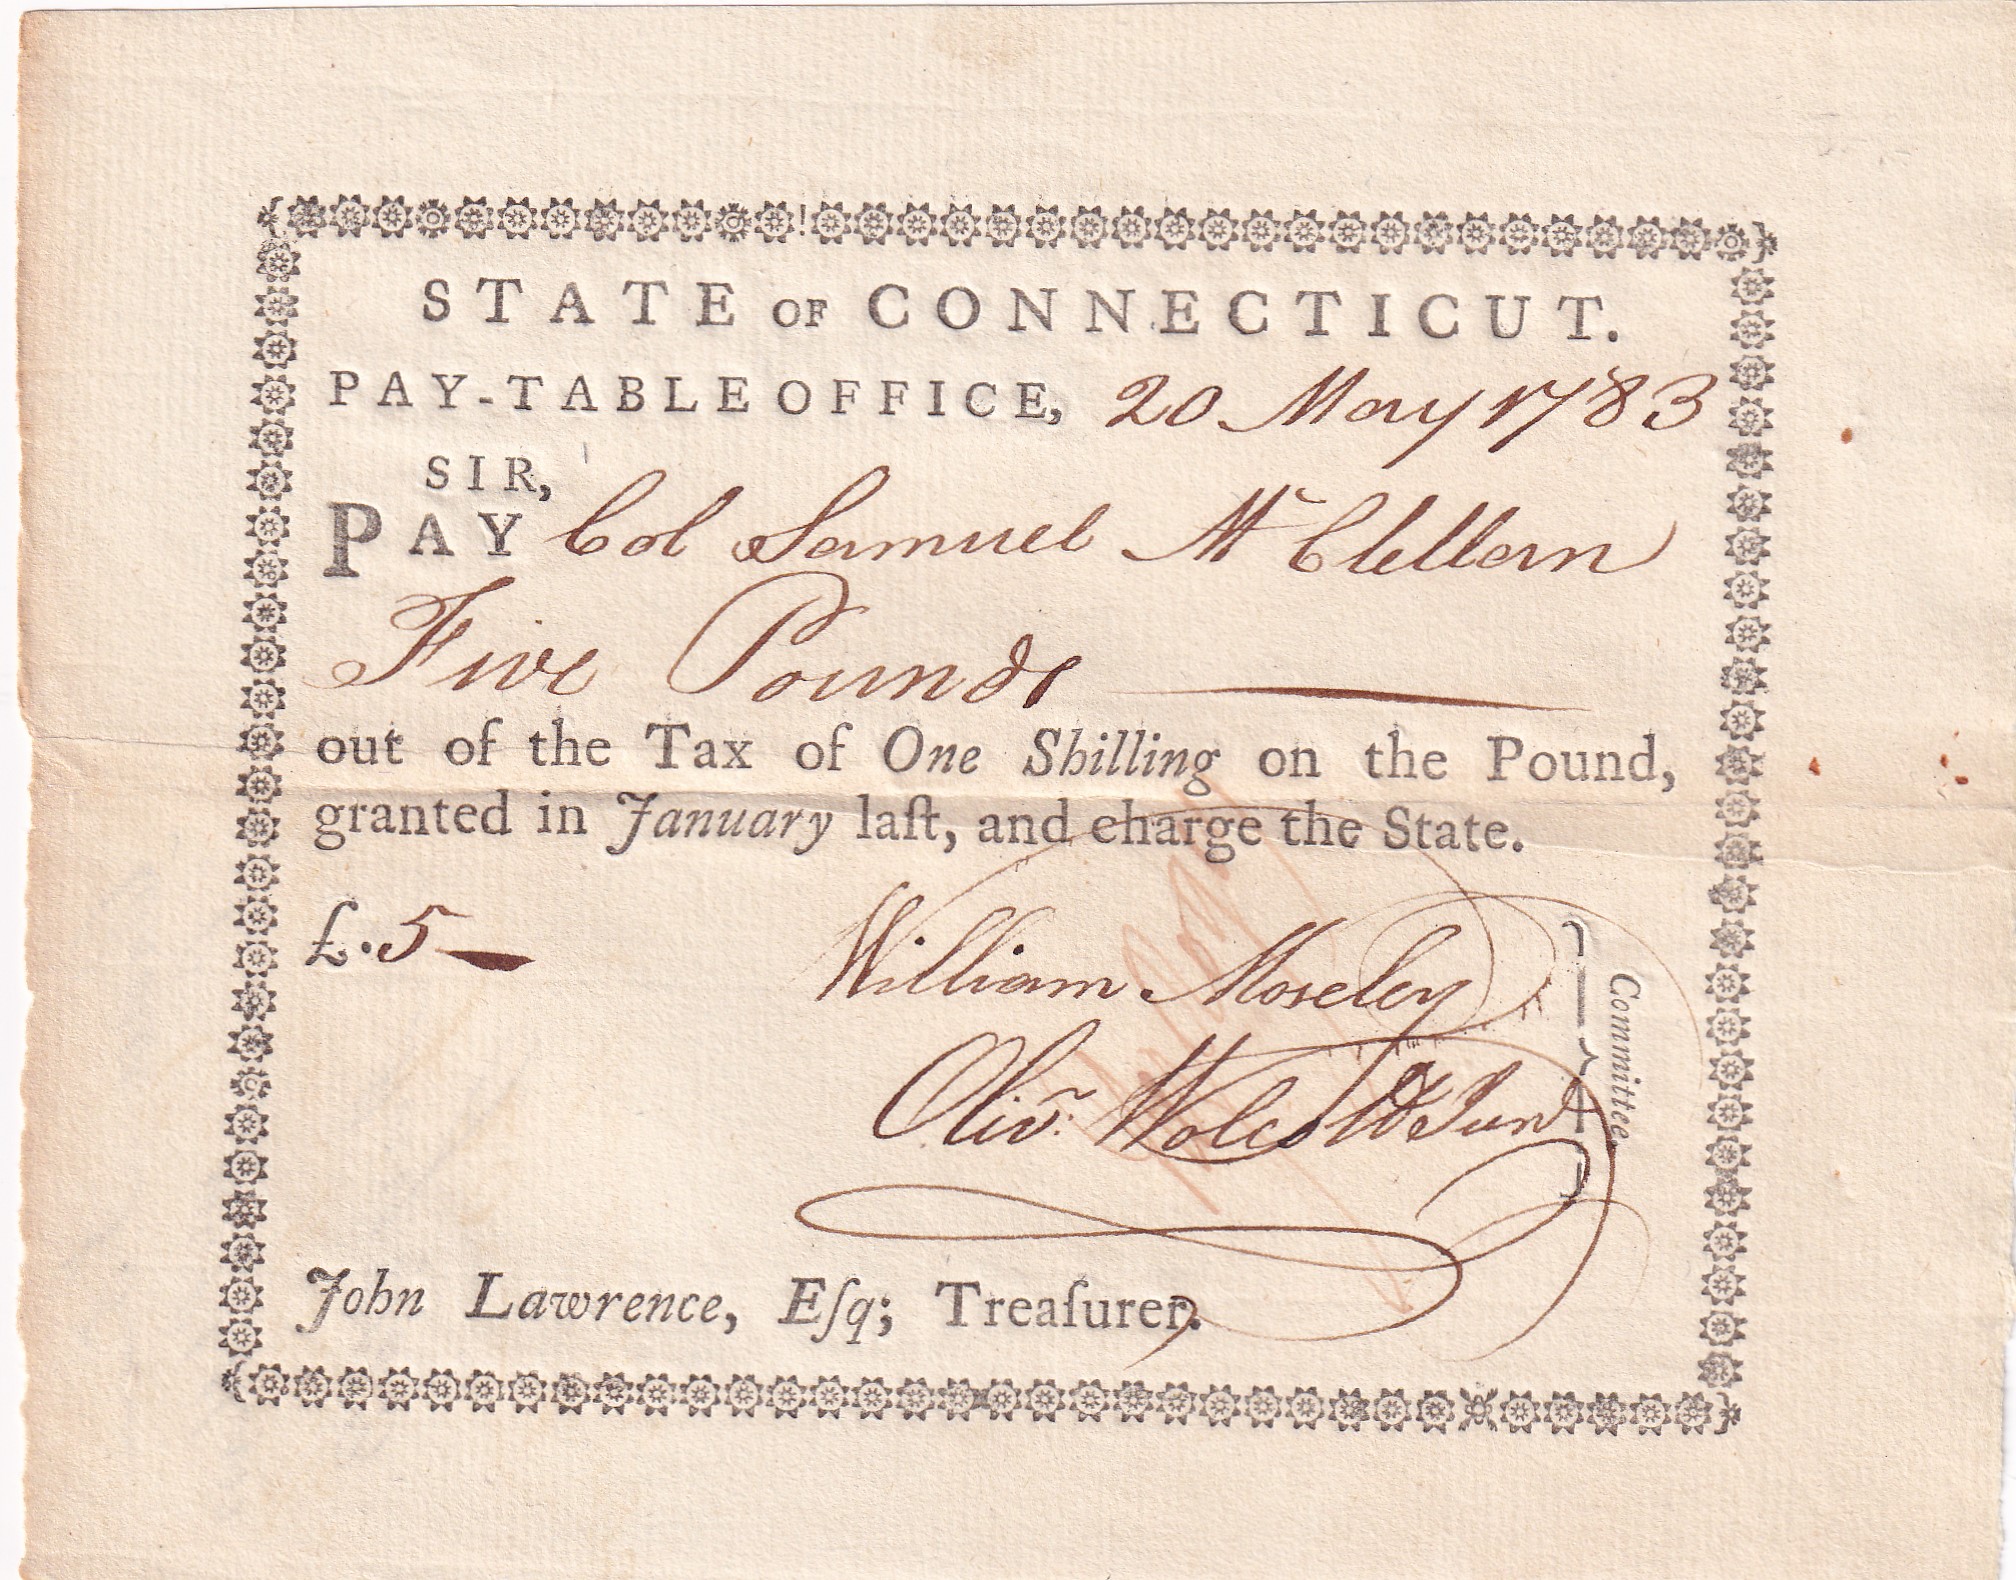 STATE OF CONNECTICUT.
PAY-TABLE OFFICE, 20 May 1783
SIR,
PAY Col Samuel Mc Clellan
Five Pounds
out of the Tax of One Shilling on the Pound,
granted in January laſt, and charge the State.
£.5
William Moseley
Olivr. Wolcott Junr
Committee.
John Lawrence, Eſq; Treaſurer.